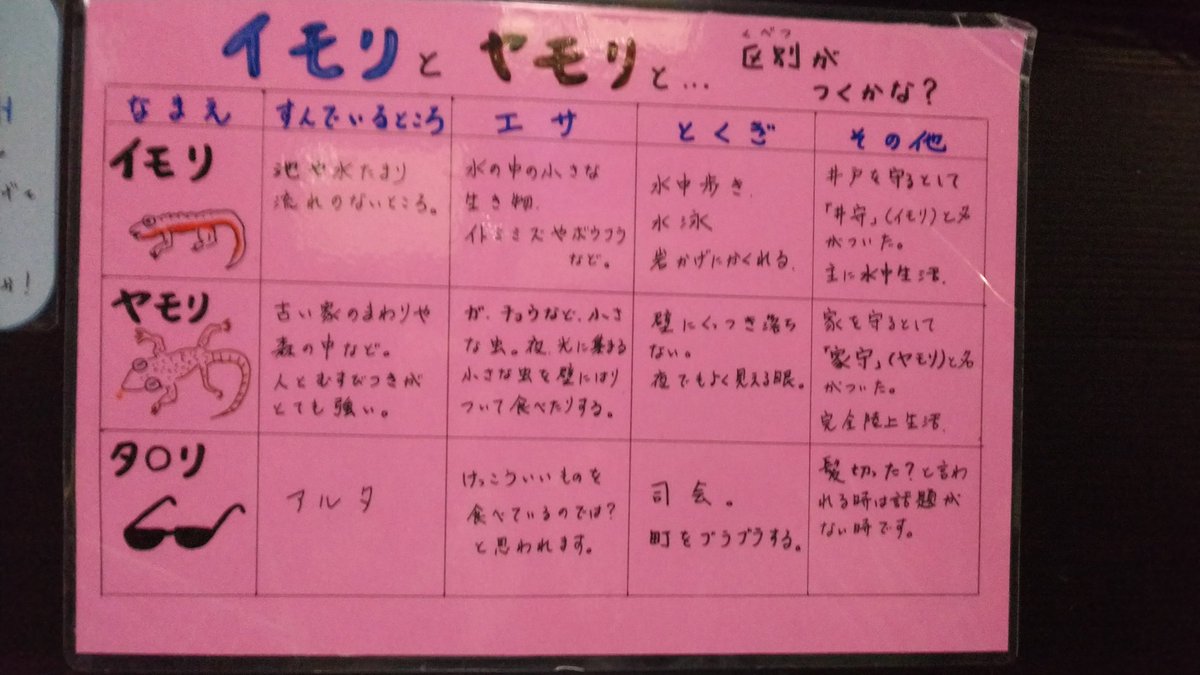 イモリとヤモリと… 区別が
くべつ
つくかな？
なまえ
すんでいるところ
エサ
とくぎ
その他
イモリ
池や水たまり
流れのないところ。
水の中の小さな
生き物.
イトミミズやボウフラ
など。
水中歩き.
水泳
岩かげにかくれる.
井戸を守るとして
「井守」(イモリ)と名
がついた。
主に水中生活.
ヤモリ
古い家のまわりや
森の中など。
人とむすびつきが
とても強い。
が、チョウなど、小さ
な虫。夜、光に集まる
小さな虫を壁にはり
ついて食べたりする。
壁にくっつき落ち
ない。
夜でもよく見える眼。
家を守るとして
「家守」(ヤモリ)と名
がついた。
完全陸上生活.
タ○リ
アルタ
けっこういいものを
食べているのでは？
と思われます。
司会。
町をブラブラする。
髪切った？と言わ
れる時は話題が
ない時です。